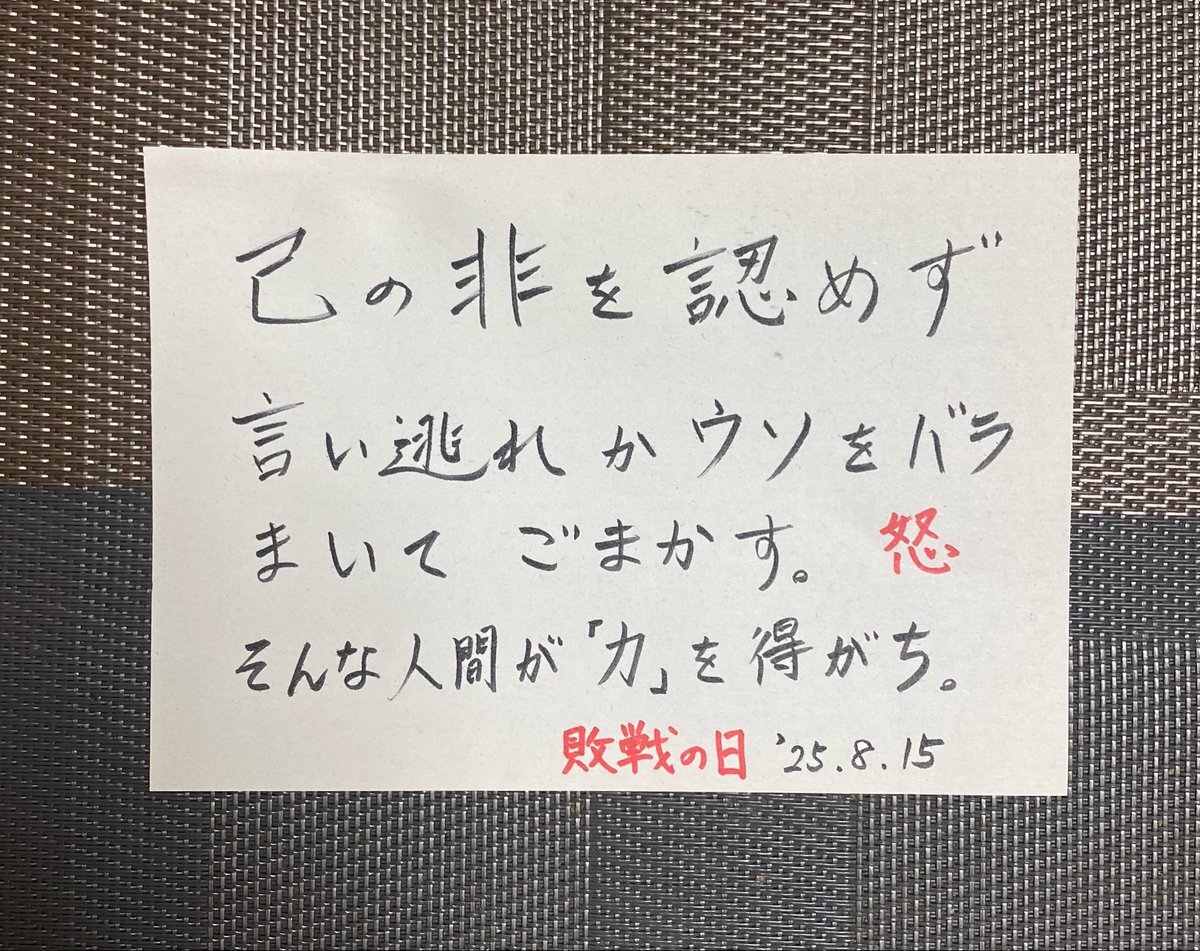 己の非を認めず
言い逃れかウソをバラ
まいてごまかす。怒
そんな人間が「力」を得がち。
敗戦の日 '25.8.15